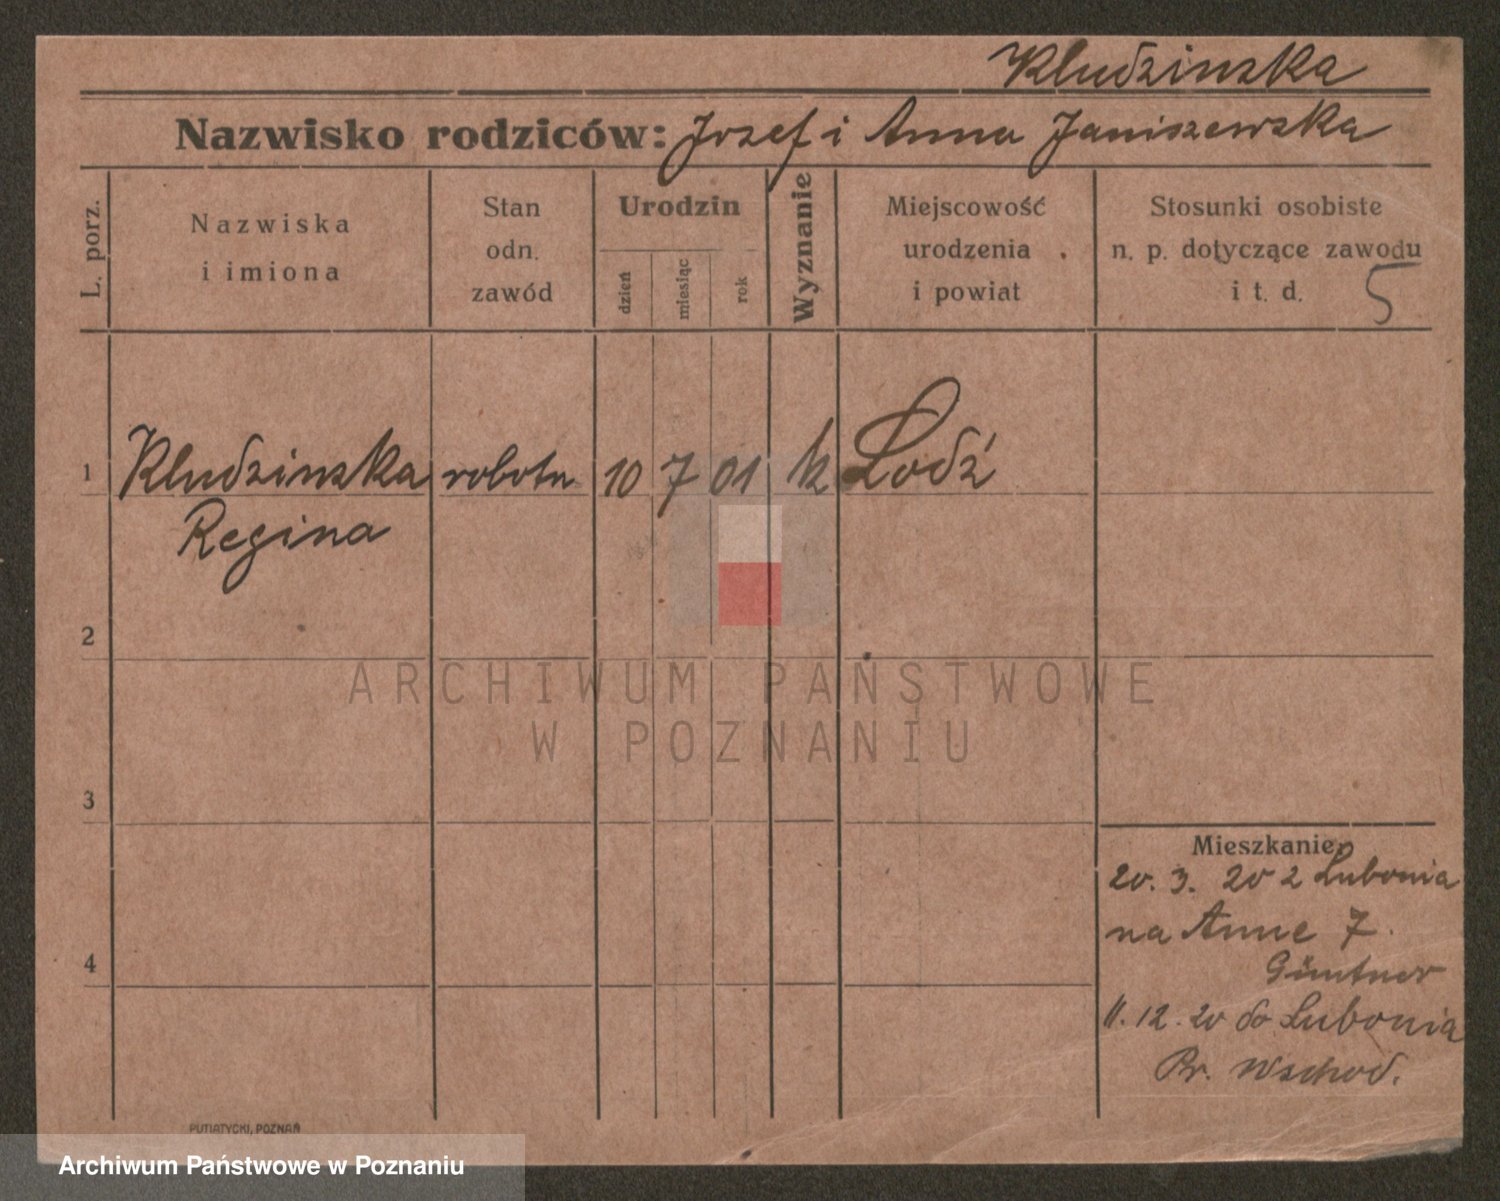 Kludzinska
Nazwisko rodziców: Jozef i Anna Janiszewska
L. porz.
Nazwiska
i imiona
Stan
odn.
zawód
Urodzin
dzień
miesiąc
rok
Wyznanie
Miejscowość
urodzenia
i powiat
Stosunki osobiste
n. p. dotyczące zawodu
i t. d. 5
1 Kludzinska robotn 10 7 01 k Łodź
Regina
2
3
4
Mieszkanie
20. 3. 20 z Lubonia
na Anne 7.
Güntner
11. 12. 20 do Lubonia
Pr. Wschod.
PUTIATYCKI, POZNAŃ
ARCHIWUM PAŃSTWOWE
W POZNANIU
Archiwum Państwowe w Poznaniu